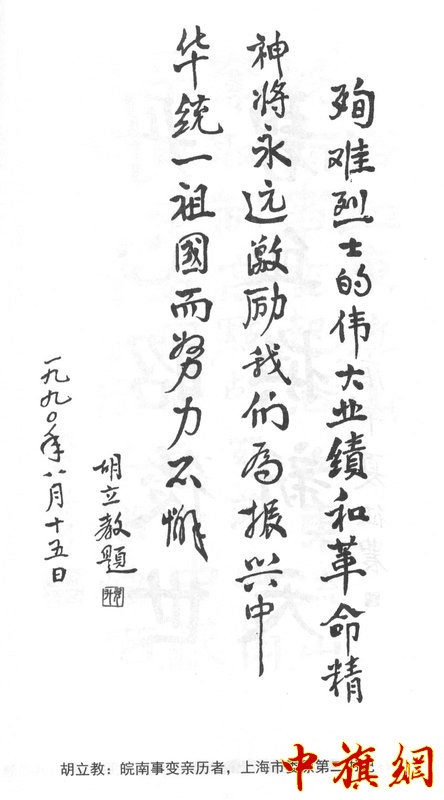 殉难烈士的伟大业绩和革命精
神将永远激励我们為振兴中
华统一祖國而努力不懈
胡立教题
一九九〇年八月十五日
胡立教：皖南事变亲历者，上海市
中旗網